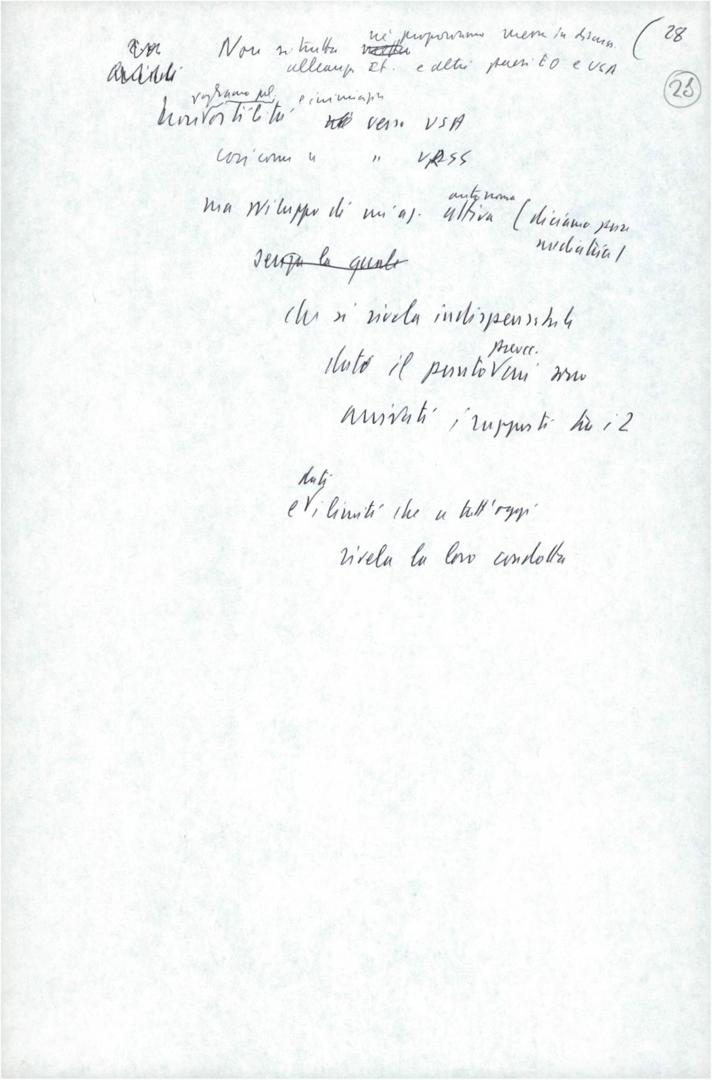 né proponiamo messa in discuss. ( 28
Non si tratta
alleanza It. e altri paesi EO e USA
23
vogliamo pol. e inimicizia
Non ostilità verso USA
così come " " URSS
autonoma
ma sviluppo di un'az. attiva (diciamo pure
mediatrice)
senza la quale
che si rivela indispensabile
preocc.
dato il punto cui sono
arrivati i rapporti tra i 2
dati
e i limiti che a tutt'oggi
rivela la loro condotta